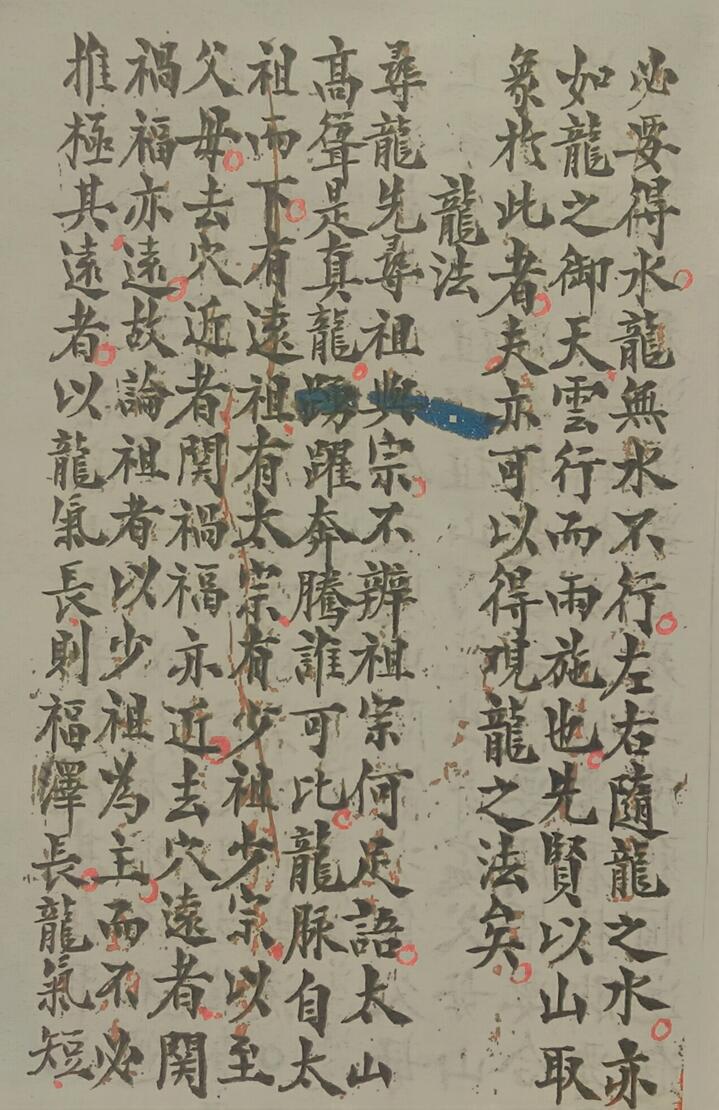 必要得水龍無水不行左右隨龍之水亦
如龍之御天雲行而雨施也先賢以山取
象於此者夫亦可以得覌龍之法矣
龍法
尋龍先尋祖與宗不辨祖宗何足語太山
髙聳是真龍踴躍奔騰誰可比龍脉自太
祖而下有遠祖有太宗有少祖少宗以至
父母去穴近者関禍福亦近去穴遠者関
禍福亦遠故論祖者以少祖為主而不必
推極其遠者以龍氣長則福澤長龍氣短